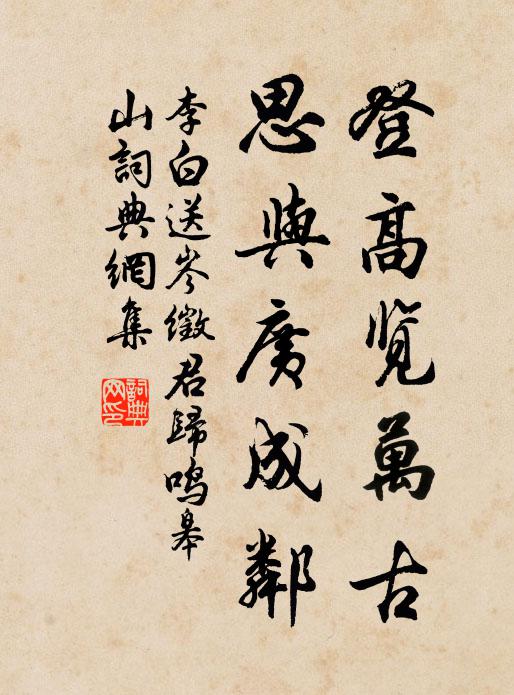 登高覽萬古
思與廣成鄰
李白送岑徵君歸鳴皋
山詞典網集
詞典